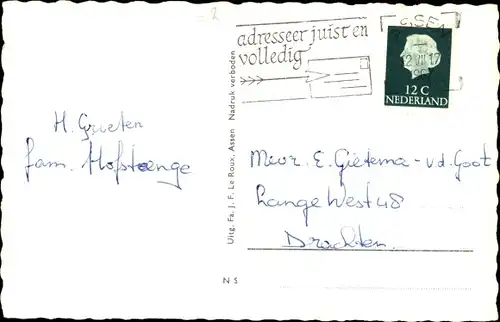 adresseer juist en
volledig
12 C
NEDERLAND
H. Groeten
fam. Hofstenge
Uitg. Fa. J. F. Le Roux, Assen Nadruk verboden
Mevr. E. Gietema - v.d. Goot
Lange West 48
Drachten.
N S